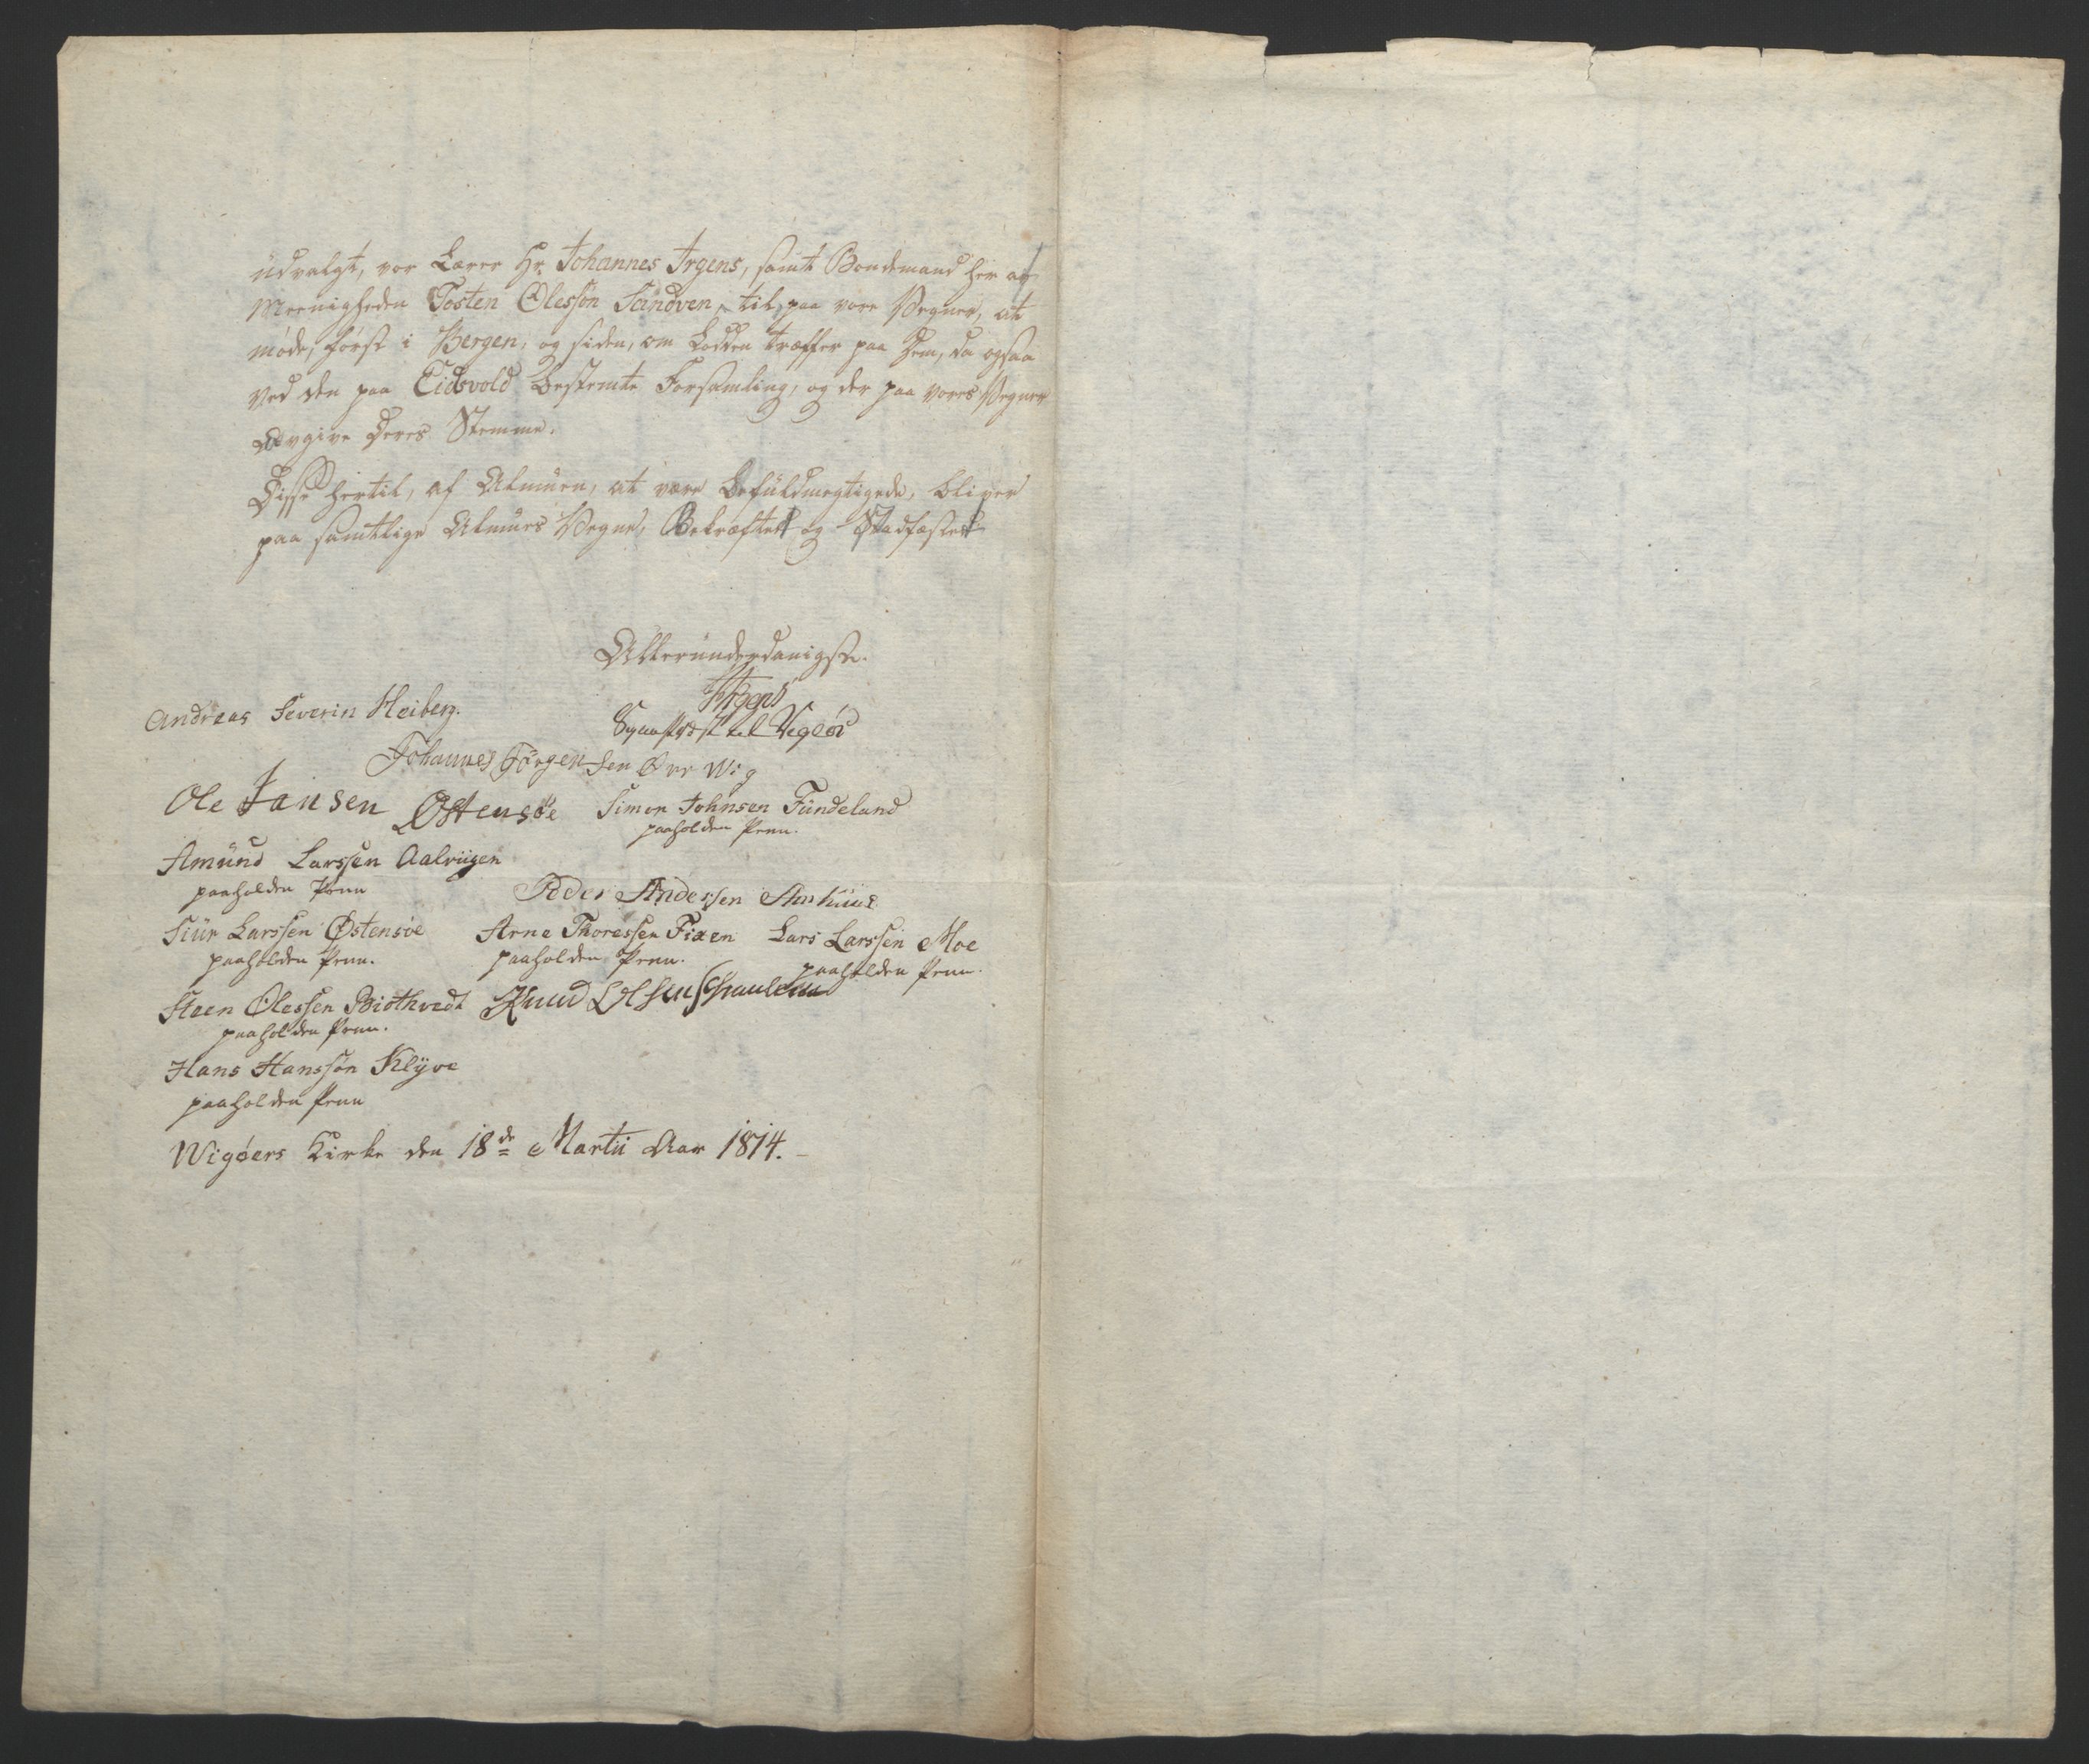 udvalgt, vor Lærer Hr. Johannes Irgens, samt Bondemand her af
Meenigheden Tosten Olessøn Sandven, til, paa vore Vegner, at
møde, først i Bergen, og siden, om Lodden træffer paa Dem, da ogsaa
ved den paa Eidsvold bestemte Forsamling, og der paa vores Vegner
Afgive Deres Stemme.
Disse hertil, af Almuen, at være befuldmegtigede, bliver
paa samtlige Almues Vegne, Bekræftet og Stadfæstet
Allerunderdanigst.
Irgens
Sognepræst til Vigøer
Andreas Severin Heiberg.
Johannes Jörgensen Øvr Wig
Ole Jansen Østensøe
Simon Johnsen Tündeland
paaholden Penn.
Amünd Larssen Aalviigen
paaholden Penn
Peder Anderssen
Siür Larssen Østensøe
paaholden Penn.
Arne Thoressen Fixen
paaholden Penn.
Lars Larssen Moe
paaholden Penn.
Steen Olessen Biothvedt
paaholden Penn.
Knud Olsen
Hans Hanssøn Klyve
paaholden Penn
Wigøers Kirke den 18de Martii Aar 1814.